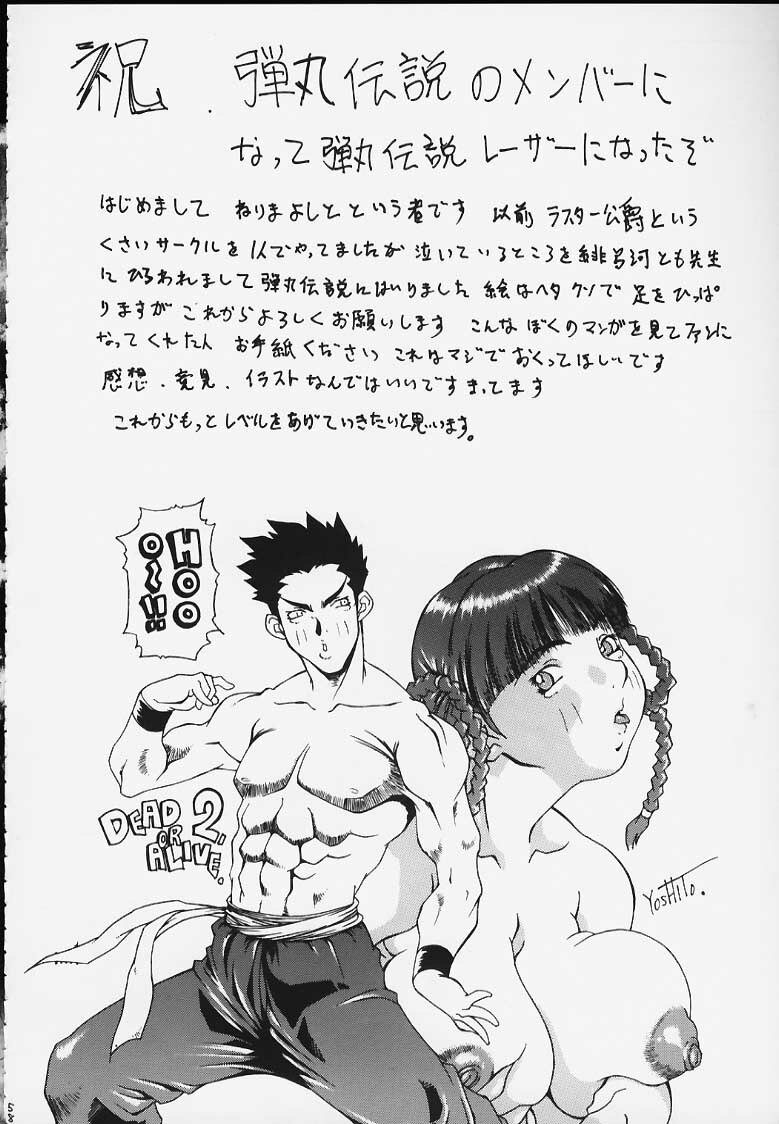 祝. 弾丸伝説のメンバーに
なって弾丸伝説レーザーになったぞ
はじめまして ねりまよしとという者です 以前 ラスター公爵という
くさいサークルを1人でやってましたが泣いているところを緋呂河とも先生
にひろわれまして弾丸伝説にはいりました 絵はヘタクソで足をひっぱ
りますが これからよろしくお願いします こんな ぼくのマンガを見てファンに
なってくれた人 お手紙ください これはマジでおくってほしいです
感想.意見.イラストなんではいいですまってます
これからもっとレベルをあげていきたいと思います。
HOO
O~!!
DEAD
OR
ALIVE.
2.
YosHiTo.
58